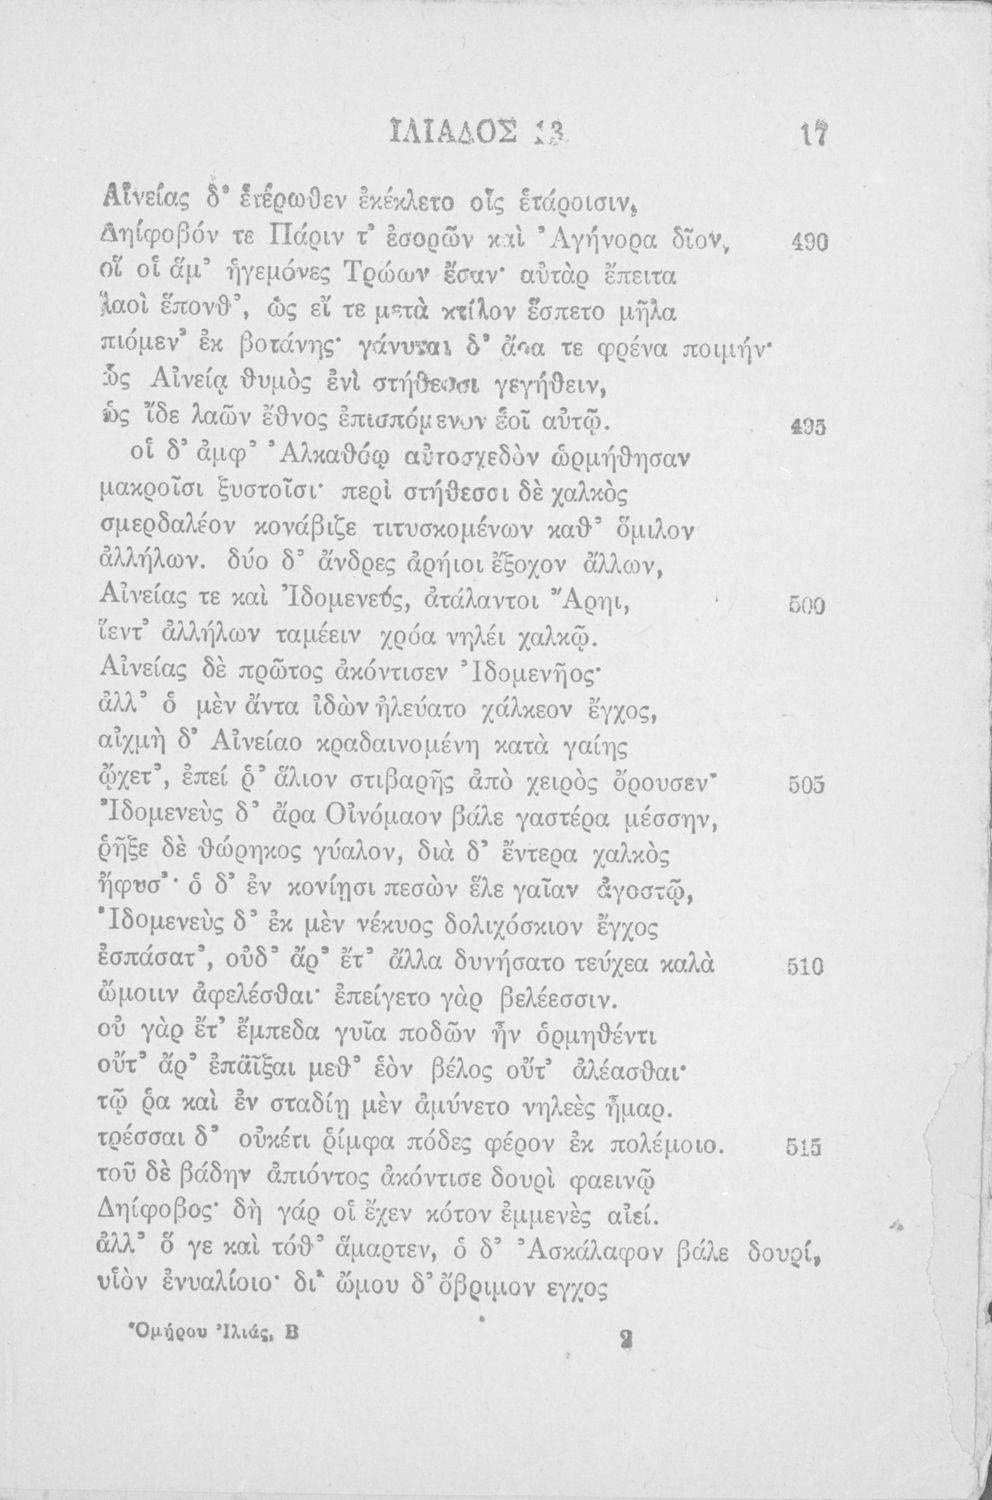 ΙΛΙΑΔΟΣ 13 17
Αἰνείας δ’ ἑτέρωθεν ἐκέκλετο οἷς ἑτάροισιν,
Δηίφοβόν τε Πάριν τ’ ἐσορῶν καὶ Ἀγήνορα δῖον, 490
οἵ οἱ ἅμ’ ἡγεμόνες Τρώων ἔσαν· αὐτὰρ ἔπειτα
λαοὶ ἕπονθ’, ὡς εἴ τε μετὰ κτίλον ἕσπετο μῆλα
πιόμεν’ ἐκ βοτάνης· γάνυται δ’ ἄρα τε φρένα ποιμήν·
ὣς Αἰνείᾳ θυμὸς ἐνὶ στήθεσσι γεγήθειν,
ὡς ἴδε λαῶν ἔθνος ἐπισπόμενον ἑοῖ αὐτῷ. 495
οἱ δ’ ἀμφ’ Ἀλκαθόῳ αὐτοσχεδὸν ὡρμήθησαν
μακροῖσι ξυστοῖσι· περὶ στήθεσσι δὲ χαλκὸς
σμερδαλέον κονάβιζε τιτυσκομένων καθ’ ὅμιλον
ἀλλήλων. δύο δ’ ἄνδρες ἀρήιοι ἔξοχον ἄλλων,
Αἰνείας τε καὶ Ἰδομενεύς, ἀτάλαντοι Ἄρηι, 500
ἵεντ’ ἀλλήλων ταμέειν χρόα νηλέι χαλκῷ.
Αἰνείας δὲ πρῶτος ἀκόντισεν Ἰδομενῆος·
ἀλλ’ ὁ μὲν ἄντα ἰδὼν ἠλεύατο χάλκεον ἔγχος,
αἰχμὴ δ’ Αἰνείαο κραδαινομένη κατὰ γαίης
ᾤχετ’, ἐπεί ῥ’ ἅλιον στιβαρῆς ἀπὸ χειρὸς ὄρουσεν·  505
Ἰδομενεὺς δ’ ἄρα Οἰνόμαον βάλε γαστέρα μέσσην,
ῥῆξε δὲ θώρηκος γύαλον, διὰ δ’ ἔντερα χαλκὸς
ἤφυσ’· ὁ δ’ ἐν κονίῃσι πεσὼν ἕλε γαῖαν ἀγοστῷ,
Ἰδομενεὺς δ’ ἐκ μὲν νέκυος δολιχόσκιον ἔγχος
ἐσπάσατ’, οὐδ’ ἄρ’ ἔτ’ ἄλλα δυνήσατο τεύχεα καλὰ 510
ὤμοιιν ἀφελέσθαι· ἐπείγετο γὰρ βελέεσσιν.
οὐ γὰρ ἔτ’ ἔμπεδα γυῖα ποδῶν ἦν ὁρμηθέντι
οὔτ’ ἄρ’ ἐπᾱῖξαι μεθ’ ἑὸν βέλος οὔτ’ ἀλέασθαι·
τῷ ῥα καὶ ἐν σταδίῃ μὲν ἀμύνετο νηλεὲς ἦμαρ.
τρέσσαι δ’ οὐκέτι ῥίμφα πόδες φέρον ἐκ πολέμοιο. 515
τοῦ δὲ βάδην ἀπιόντος ἀκόντισε δουρὶ φαεινῷ
Δηίφοβος· δὴ γάρ οἱ ἔχεν κότον ἐμμενὲς αἰεί.
ἀλλ’ ὅ γε καὶ τόθ’ ἅμαρτεν, ὁ δ’ Ἀσκάλαφον βάλε δουρί,
υἱὸν ἐνυαλίοιο· δι’ ὤμου δ’ ὄβριμον εγχος
Ὁμήρου Ἰλιάς, Β 2